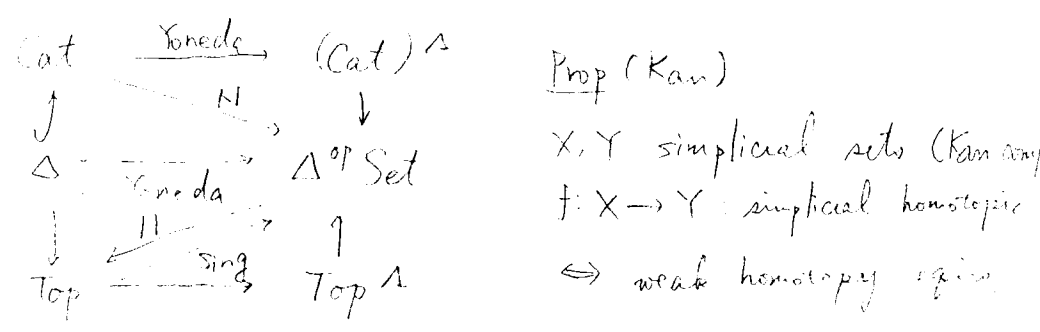 Cat Yoneda (Cat)^
N
Δ Yoneda Δ^op Set
| |
Sing
Top Top^
Prop (Kan)
X, Y simplicial sets (Kan
f: X → Y : simplicial homotopic
⇔ weak homotopy